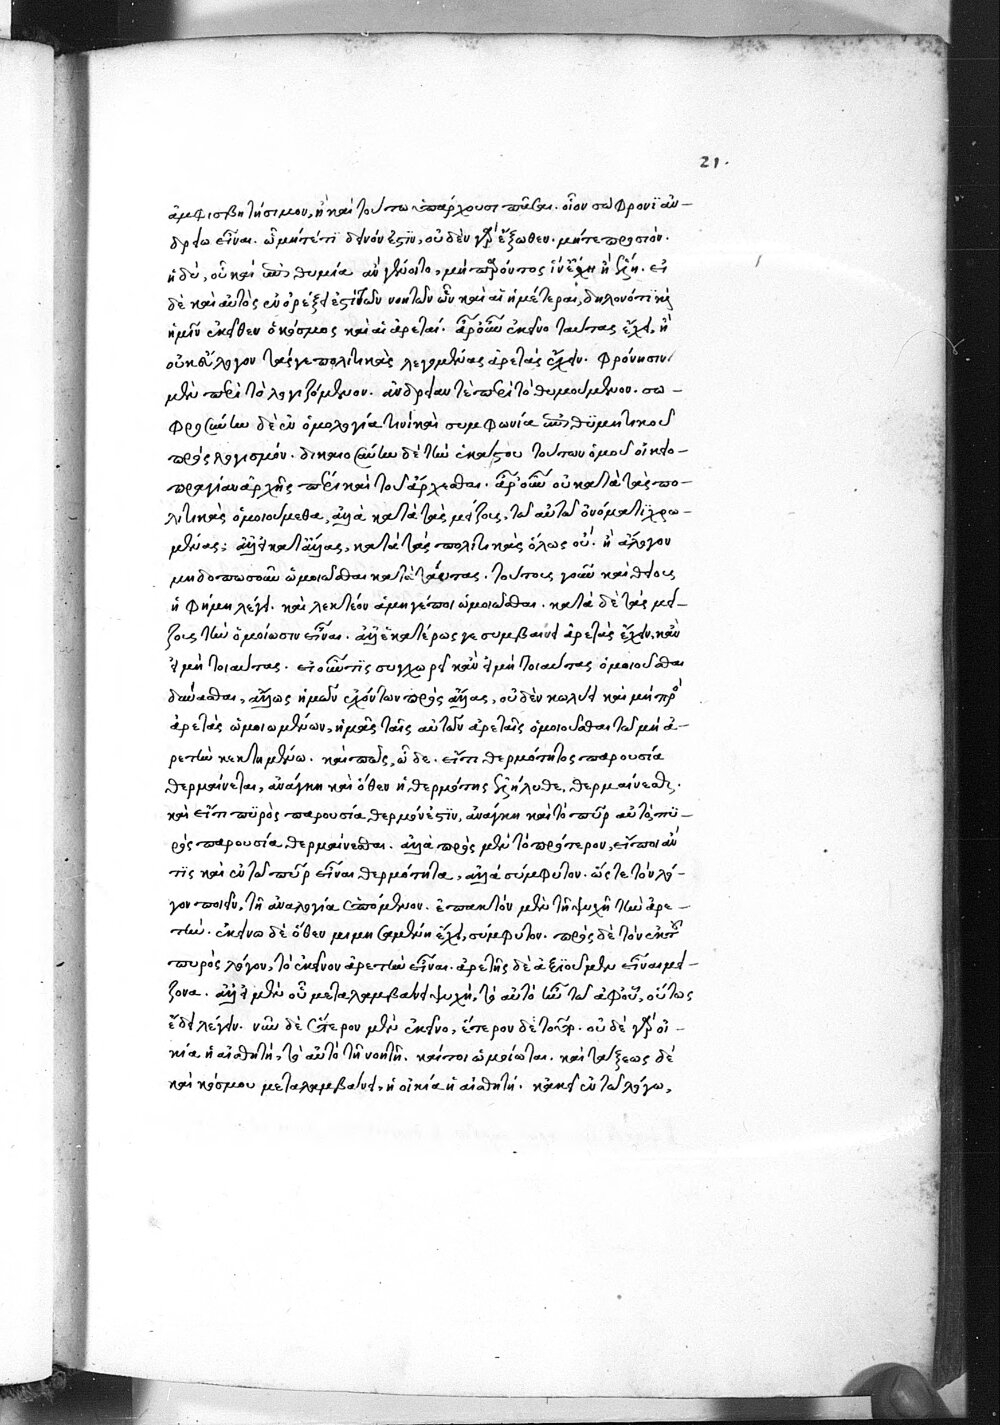 21.
ἀμφισβητήσιμον, εἰ καὶ τούτω ὑπάρχουσι πᾶσαι. οἷον σώφρονϊ ἀν-
δρείω εἶναι. ὧ μήτέ τι δεινόν ἐστϊν, οὐδὲν γὰρ ἔξωθεν. μήτε προσιὸν.
ἡδὺ, οὗ καὶ ἐπιθυμία ἂν γένοιτο, μὴ παρόντος ἵν' ἔχη ἢ ἕλη. εἰ
δὲ καὶ αὐτὸς ἐν ὀρέξει ἐστὶ τῶν νοητῶν ὧν καὶ αἱ ἡμέτεραι, δηλονότι καὶ
ἡμῖν ἐκεῖθεν ὁ κόσμος καὶ αἱ ἀρεταί. ἆρ' οὖν ἐκεῖνο ταύτας ἔχει, ἢ
οὐκ εὔλογον τάς γε πολιτικὰς λεγομένας ἀρετὰς ἔχειν. φρόνησιν
μὲν περὶ τὸ λογιζόμενον. ἀνδρείαν τὲ περὶ τὸ θυμούμενον. σω-
φροσύνην δὲ ἐν ὁμολογία τινὶ καὶ συμφωνία ἐπιθϋμητικοῦ
πρὸς λογισμόν. δικαιοσύνην δὲ τὴν ἑκάστου τούτων ὁμοῦ οἰκειο-
πραγίαν ἀρχῆς πέρι καὶ τοῦ ἄρχεσθαι. ἆρ' οὖν οὐ κατὰ τὰς πο-
λιτικὰς ὁμοιούμεθα, ἀλλὰ κατὰ τὰς μείζους, τῶ αὐτῶ ὀνόματϊ χρω-
μένας; ἀλλ' εἰ κατ' ἄλλας, κατὰ τὰς πολιτικὰς ὅλως οὔ. ἢ ἄλογον
μηδοπωσοῦν ὡμοιῶσθαι κατὰ ταύτας. τούτους γοῦν καὶ θείους
ἡ φήμη λέγει. καὶ λεκτέον ἁμηγέποι ὡμοιῶσθαι. κατὰ δὲ τὰς μεί-
ζους τὴν ὁμοίωσιν εἶναι. ἀλλ' ἑκατέρως γε συμβαίνει ἀρετὰς ἔχειν, κἂν
εἰ μὴ τοιαύτας. εἰ οὖν τις συγχωρεῖ κἂν εἰ μὴ τοιαύτας ὁμοιοῦσθαι
δύνασθαι, ἄλλως ἡμῶν ἐχόντων πρὸς ἄλλας, οὐδὲν κωλύει καὶ μὴ πρὸς
ἀρετὰς ὡμοιωμένων, ἡμᾶς ταῖς αὑτῶν ἀρεταῖς ὁμοιοῦσθαι τῶ μὴ ἀ-
ρετὴν κεκτημένω. καὶ πῶς, ὧδε. εἴ τι θερμότητος παρουσία
θερμαίνεται, ἀνάγκη καὶ ὅθεν ἡ θερμότης ἐλήλυθε, θερμαίνεσθαι.
καὶ εἴ τι πϋρὸς παρουσία θερμόν ἐστϊν, ἀνάγκη καὶ τὸ πῦρ αὐτὸ πϋ-
ρὸς παρουσία θερμαίνεσθαι. ἀλλὰ πρὸς μὲν τὸ πρότερον, εἴποι ἄν
τις καὶ ἐν τῶ πῦρ εἶναι θερμότητα, ἀλλὰ σύμφυτον. ὥστε τὸν λό-
γον ποιεῖν, τῆ ἀναλογία ἑπόμενον. ἐπακτὸν μὲν τῆ ψυχῆ τὴν ἀρε-
τήν. ἐκείνω δὲ ὅθεν μιμησαμένη ἔχει, σύμφυτον. πρὸς δὲ τὸν ἐκ τοῦ
πυρὸς λόγον, τὸ ἐκεῖνον ἀρετὴν εἶναι. ἀρετῆς δὲ ἀξιοῦμεν εἶναι μεί-
ζονα. ἀλλ' εἰ μὲν οὗ μεταλαμβάνει ψυχὴ, τὸ αὐτὸ ἦν τῶ ἀφ' οὗ, οὕτως
ἔδει λέγειν. νῦν δὲ ἕτερον μὲν ἐκεῖνο, ἕτερον δὲ τοῦτο. οὐδὲ γὰρ οἰ-
κία ἡ αἰσθητὴ, τὸ αὐτὸ τῆ νοητῆ. καίτοι ὡμοίωται. καὶ τάξεως δὲ
καὶ κόσμου μεταλαμβάνει, ἡ οἰκία ἡ αἰσθητή. κἀκεῖ ἐν τῶ λόγω,